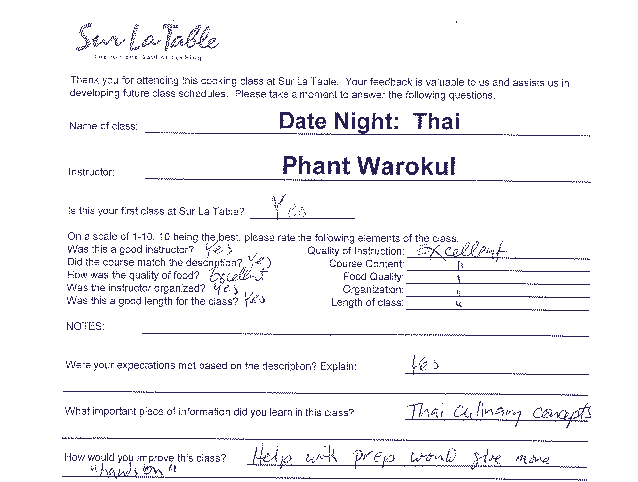 Sur La Table
Thank you for attending this cooking class at Sur La Table. Your feedback is valuable to us and assists us in
developing future class schedules. Please take a moment to answer the following questions.
Name of class: Date Night: Thai
Instructor: Phant Warokul
Is this your first class at Sur La Table? Yes
On a scale of 1-10, 10 being the best, please rate the following elements of the class.
Was this a good instructor? Yes Quality of Instruction: Excellent
Did the course match the description? Yes Course Content: "
How was the quality of food? Excellent Food Quality: "
Was the instructor organized? Yes Organization: "
Was this a good length for the class? Yes Length of class: "
NOTES:
Were your expectations met based on the description? Explain: Yes
What important piece of information did you learn in this class? Thai Culinary Concepts
How would you improve this class? Help with prep would give more
"hands on"